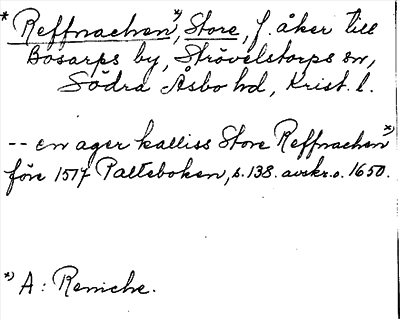 * Reffnachen*), Store, f. åker till
Bosarps by, Strövelstorps sn,
Södra Åsbo hd, Krist. l.
-- en ager kalliss Store Reffnachen*)
före 1517 Palteboken, s. 138. avskr. o. 1650.
*) A: Reniche.